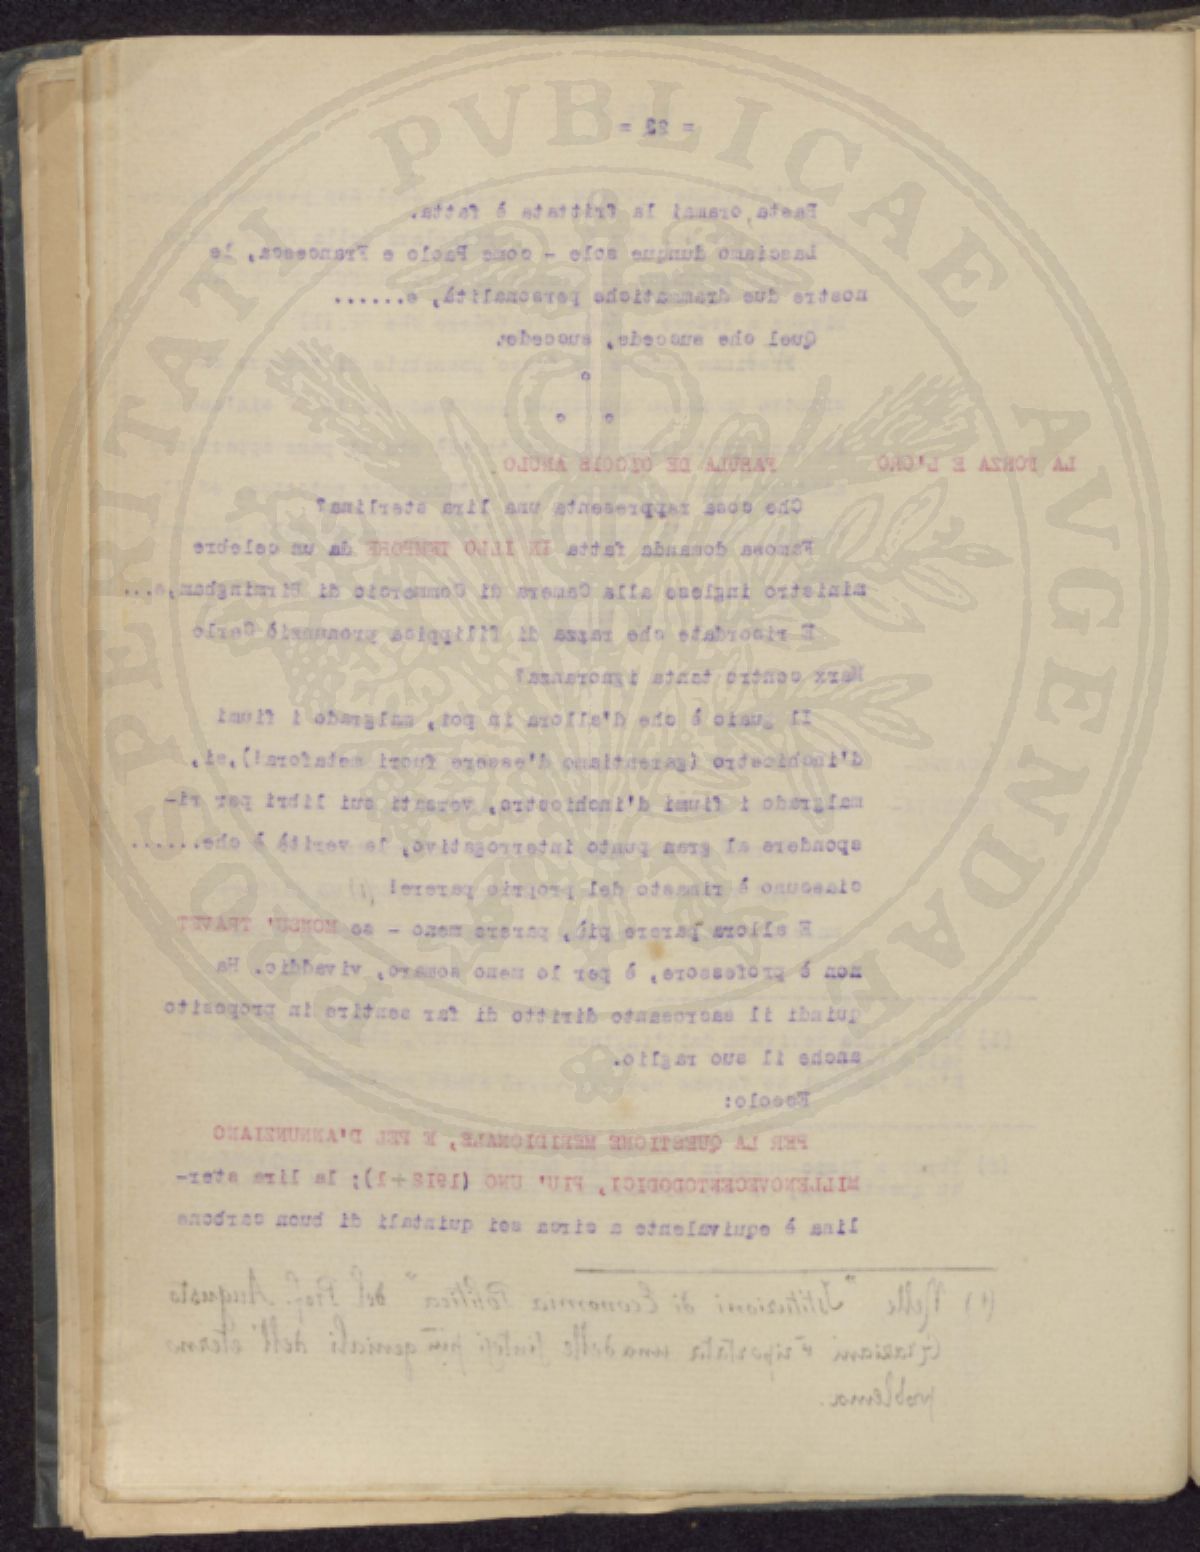 = 22 =
Basta, oramai la frittata è fatta.
Lasciamo dunque sole - come Paolo e Francesca, le
nostre due drammatiche personalità, e......
Quel che succede, succede.
°
° °
LA FORZA E L'ORO FABULA DE OCCIS AROLO
Che cosa rappresenta una lira sterlina?
Famosa domanda fatta IN ILLO TEMPORE da un celebre
ministro inglese alla Camera di Commercio di Birmingham,e...
E ricordate che razza di filippica pronunziò Carlo
Marx contro tanta ignoranza?
Il guaio è che d'allora in poi, malgrado i fiumi
d'inchiostro (garentiamo d'essere fuori metafora!),si,
malgrado i fiumi d'inchiostro, versati sui libri per ri-
spondere al gran punto interrogativo, la verità è che......
ciascuno è rimasto del proprio parere! (1)
E allora parere più, parere meno - se MONSU' TRAVET
non è professore, è per lo meno somaro, vivaddio. Ha
quindi il sacrosanto diritto di far sentire in proposito
anche il suo raglio.
Eccolo:
PER LA QUESTIONE MERIDIONALE, E PEL D'ANNUNZIANO
MILLENOVECENTODODICI, PIU' UNO (1912+1); la lira ster-
lina è equivalente a circa sei quintali di buon carbone
(1) Nelle "Istituzioni di Economia Politica" del Prof. Augusto
Graziani è riportata una delle sintesi più geniali dell'eterno
problema.
PROSPERITATI PVBLICAE AVGENDAE